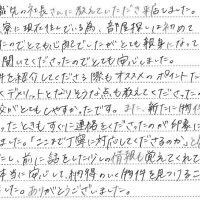 社長さんに教えていただき来店しました。
寮に現在住んでいる為、部屋探しは初めて
だったのでとても心配でしたがとても親身になって
聞いてくださったのでとても安心しました。
件を紹介してくださる際もオススメのポイントだ
くデメリットとだいうな点も教えてくださった
較がとてもしやすかったです。また、新たに物件
ったときもすぐに連絡をくださったのが印象に
ました。「ここまで丁寧に対応してくださるのか」と
たし、前に話をしたけいの情報も覚えてくれて
本当に安心して、納得のいく物件を見つけるこ
した。ありがとうございました。